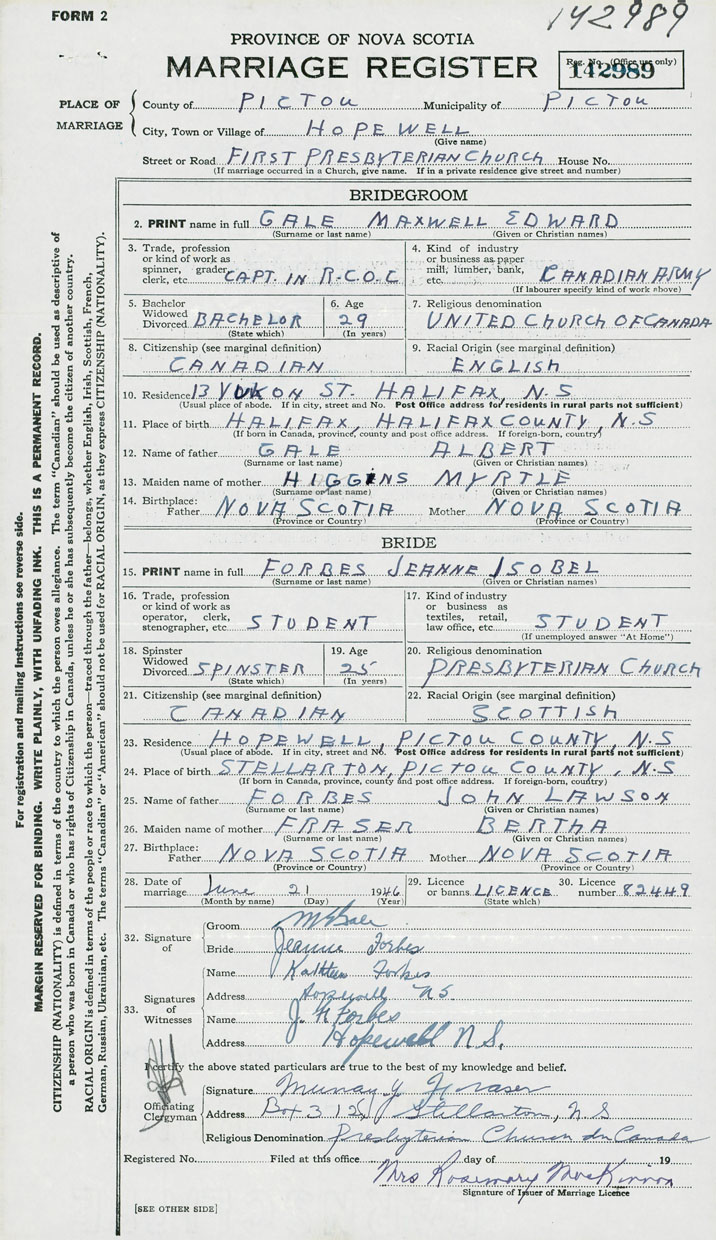 FORM 2
142989
PROVINCE OF NOVA SCOTIA
MARRIAGE REGISTER
Reg. No. (Office use only)
142989
PLACE OF MARRIAGE
County of PICTOU Municipality of PICTOU
City, Town or Village of HOPEWELL
(Give name)
Street or Road FIRST PRESBYTERIAN CHURCH House No.
(If marriage occurred in a Church, give name. If in a private residence give street and number)
BRIDEGROOM
2. PRINT name in full GALE MAXWELL EDWARD
(Surname or last name) (Given or Christian names)
3. Trade, profession or kind of work as spinner, grader, clerk, etc. CAPT. IN R.C.O.C
4. Kind of industry or business as paper mill, lumber, bank, etc. CANADIAN ARMY
(If labourer specify kind of work above)
5. Bachelor Widowed Divorced BACHELOR
(State which)
6. Age 29
(In years)
7. Religious denomination
UNITED CHURCH OF CANADA
8. Citizenship (see marginal definition)
CANADIAN
9. Racial Origin (see marginal definition)
ENGLISH
10. Residence 13 YUKON ST. HALIFAX, N.S
(Usual place of abode. If in city, street and No. Post Office address for residents in rural parts not sufficient)
11. Place of birth HALIFAX, HALIFAX COUNTY, N.S
(If born in Canada, province, county and post office address. If foreign-born, country)
12. Name of father GALE ALBERT
(Surname or last name) (Given or Christian names)
13. Maiden name of mother HIGGINS MYRTLE
(Surname or last name) (Given or Christian names)
14. Birthplace: Father NOVA SCOTIA Mother NOVA SCOTIA
(Province or Country) (Province or Country)
BRIDE
15. PRINT name in full FORBES JEANNE ISOBEL
(Surname or last name) (Given or Christian names)
16. Trade, profession or kind of work as operator, clerk, stenographer, etc STUDENT
17. Kind of industry or business as textiles, retail, law office, etc STUDENT
(If unemployed answer "At Home")
18. Spinster Widowed Divorced SPINSTER
(State which)
19. Age 25
(In years)
20. Religious denomination
PRESBYTERIAN CHURCH
21. Citizenship (see marginal definition)
CANADIAN
22. Racial Origin (see marginal definition)
SCOTTISH
23. Residence HOPEWELL, PICTOU COUNTY, N.S
(Usual place of abode. If in city, street and No. Post Office address for residents in rural parts not sufficient)
24. Place of birth STELLARTON, PICTOU COUNTY, N.S
(If born in Canada, province, county and post office address. If foreign-born, country)
25. Name of father FORBES JOHN LAWSON
(Surname or last name) (Given or Christian names)
26. Maiden name of mother FRASER BERTHA
(Surname or last name) (Given or Christian names)
27. Birthplace: Father NOVA SCOTIA Mother NOVA SCOTIA
(Province or Country) (Province or Country)
28. Date of marriage June 21 1946
(Month by name) (Day) (Year)
29. Licence or banns LICENCE
(State which)
30. Licence number 82449
32. Signature of
Groom
Bride Jeanne Forbes
33. Signatures of Witnesses
Name Kathleen Forbes
Address Hopewell N.S.
Name J. Forbes
Address Hopewell N.S.
I certify the above stated particulars are true to the best of my knowledge and belief.
Officiating Clergyman
Signature Murray Y. Fraser
Address Box 312, Stellarton, N.S
Religious Denomination Presbyterian Church in Canada
Registered No. Filed at this office day of 19
Mrs Rosemary MacKinnon
Signature of Issuer of Marriage Licence
[SEE OTHER SIDE]
For registration and mailing instructions see reverse side.
MARGIN RESERVED FOR BINDING. WRITE PLAINLY, WITH UNFADING INK. THIS IS A PERMANENT RECORD.
CITIZENSHIP (NATIONALITY) is defined in terms of the country to which the person owes allegiance. The term "Canadian" should be used as descriptive of
a person who was born in Canada or who has rights of Citizenship in Canada, unless he or she has subsequently become the citizen of another country.
RACIAL ORIGIN is defined in terms of the people or race to which the person—traced through the father—belongs, whether English, Irish, Scottish, French,
German, Russian, Ukrainian, etc. The terms "Canadian" or "American" should not be used for RACIAL ORIGIN, as they express CITIZENSHIP (NATIONALITY).